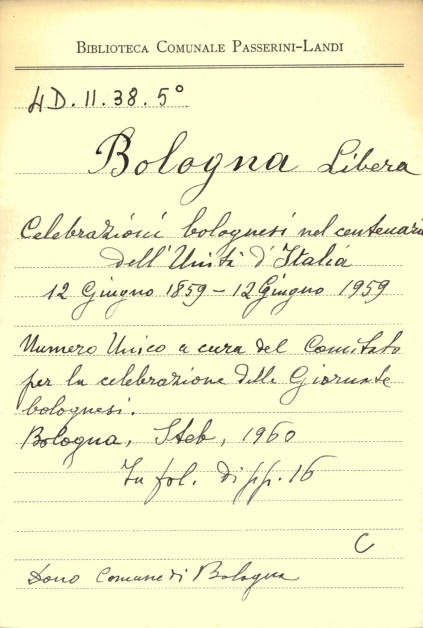 BIBLIOTECA COMUNALE PASSERINI-LANDI
4D.II.38.5°
Bologna Libera
Celebrazioni bolognesi nel centenario
dell'Unità d'Italia
12 Giugno 1859 - 12 Giugno 1959
Numero Unico a cura del Comitato
per la celebrazione delle Giornate
bolognesi.
Bologna, Steb, 1960
In fol. di pp. 16
C
Dono Comune di Bologna